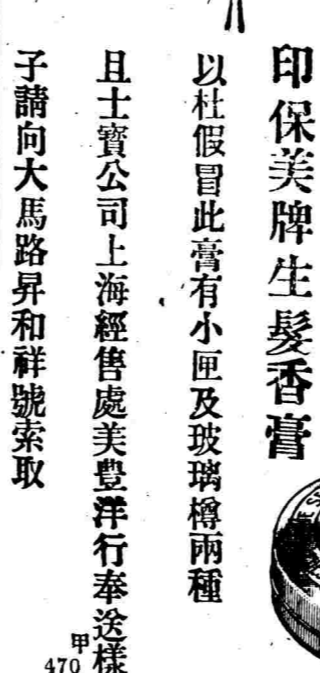 印保美牌生髮香膏
以杜假冒此膏有小匣及玻璃樽兩種
且士寶公司上海經售處美豐洋行奉送樣
子請向大馬路昇和祥號索取
甲
470